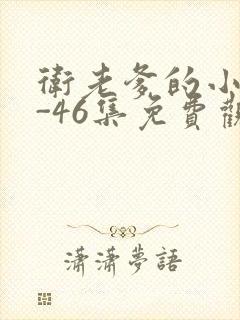 衛老爹的小
-46集免費觀
瀟瀟夢語